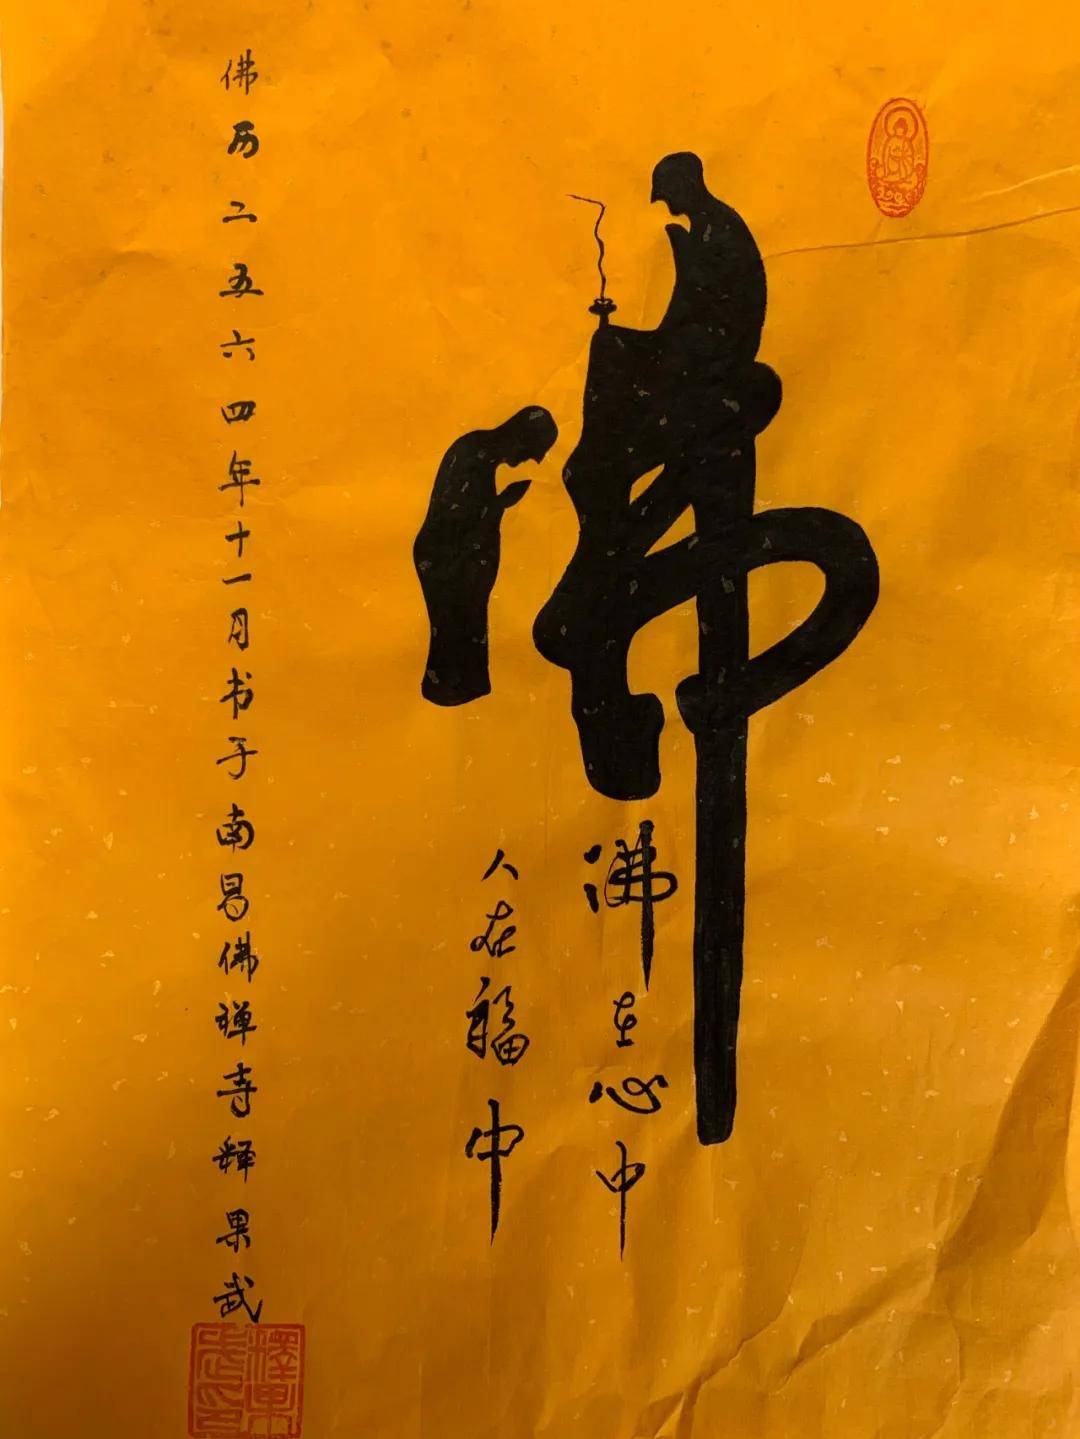 佛
佛在心中
人在福中
佛历二五六四年十一月书于南昌佛禅寺释果武
釋果武印